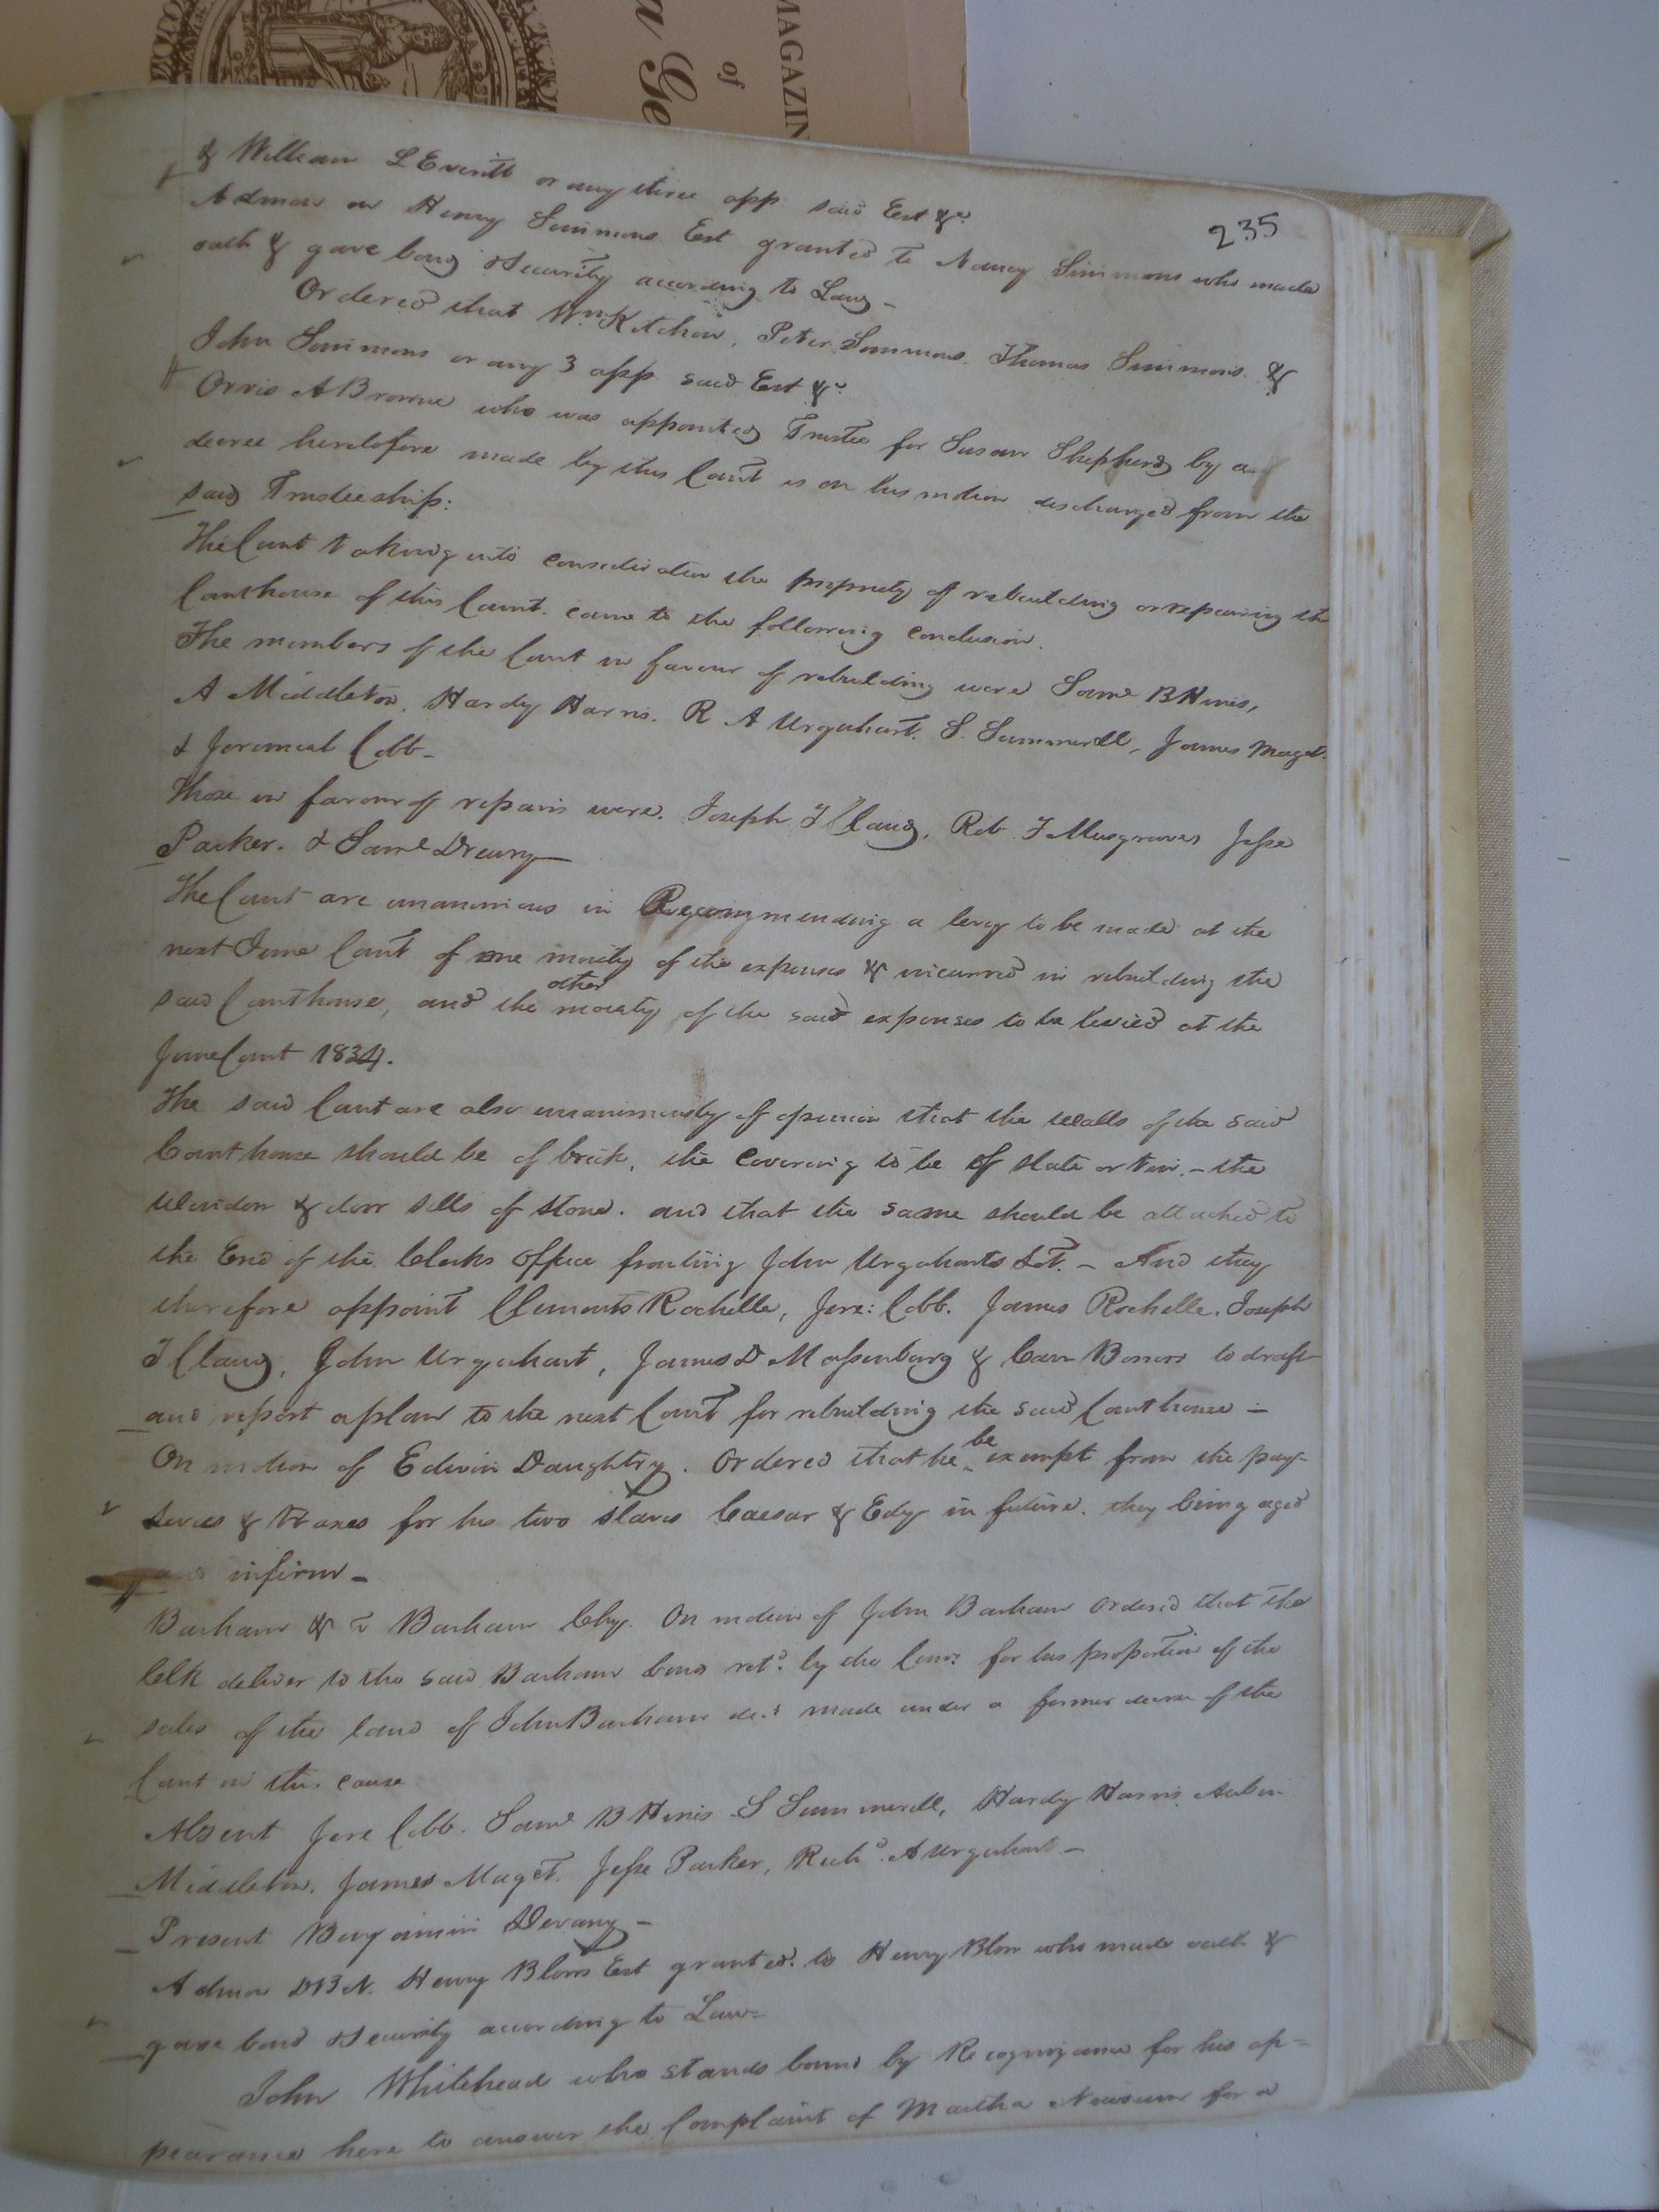 MAGAZIN
of
a Ge
235
& William L Everitt or any three app. said Est &c
Admon on Henry Simmons Est granted to Nancy Simmons who made
oath & gave bond & security according to Law -
Ordered that Wm Kitchen, Peter Simmons. Thomas Simmons &
John Simmons or any 3 app said Est &c
Orris A Browne who was appointed Trustee for Susan Shepherd by a
decree heretofore made by this Court is on his motion discharged from the
said Trusteeship:
The Court taking into consideration the propriety of rebuilding or repairing the
Courthouse of this Count. came to the following conclusion.
The members of the Court in favour of rebuilding were Saml B Hines,
A Middleton, Hardy Harris. R A Urquhart. S. Summerell, James Maget
& Jeremiah Cobb -
Those in favour of repairs were. Joseph T Claud, Rob F Musgraves Jesse
Parker. & Saml Drewry -
The Court are unanimous in Recommending a levy to be made at the
next June Court of one moiety of the expenses & incurred in rebuilding the
said Courthouse, and the other moiety of the said expenses to be levied at the
June Court 1834.
The said Court are also unanimously of opinion that the walls of the said
Courthouse should be of brick, the covering to be of slate or tin. - the
window & door sills of stone. and that the same should be attached to
the End of the Clerks Office fronting John Urquharts Lot. - And they
therefore appoint Clements Rochelle, Jere: Cobb. James Rochelle. Joseph
T Claud, John Urquhart, James D Massenburg & Carr Bowers to draft
and report a plan to the next Court for rebuilding the said Courthouse -
On motion of Edwin Daughtry. Ordered that he be exempt from the pay-
Levies & Taxes for his two slaves Caesar & Edy in future. they being aged
and infirm -
Barham & v Barham Chy. On motion of John Barham Ordered that the
Clk deliver to the said Barham bond retd. by the Comr. for his proportion of the
sales of the land of John Barham decd made under a former decree of the
Court in this cause
Absent Jere Cobb. Saml B Hines S Summerell, Hardy Harris
Middleton. James Maget. Jesse Parker, Richd. A Urquhart -
Present Benjamin Devany -
Admon DBN. Henry Blows Est granted. to Henry Blow who made oath &
gave bond & security according to Law -
John Whitehead who stands bound by Recognizance for his ap=
pearance here to answer the Complaint of Martha Newsum for a